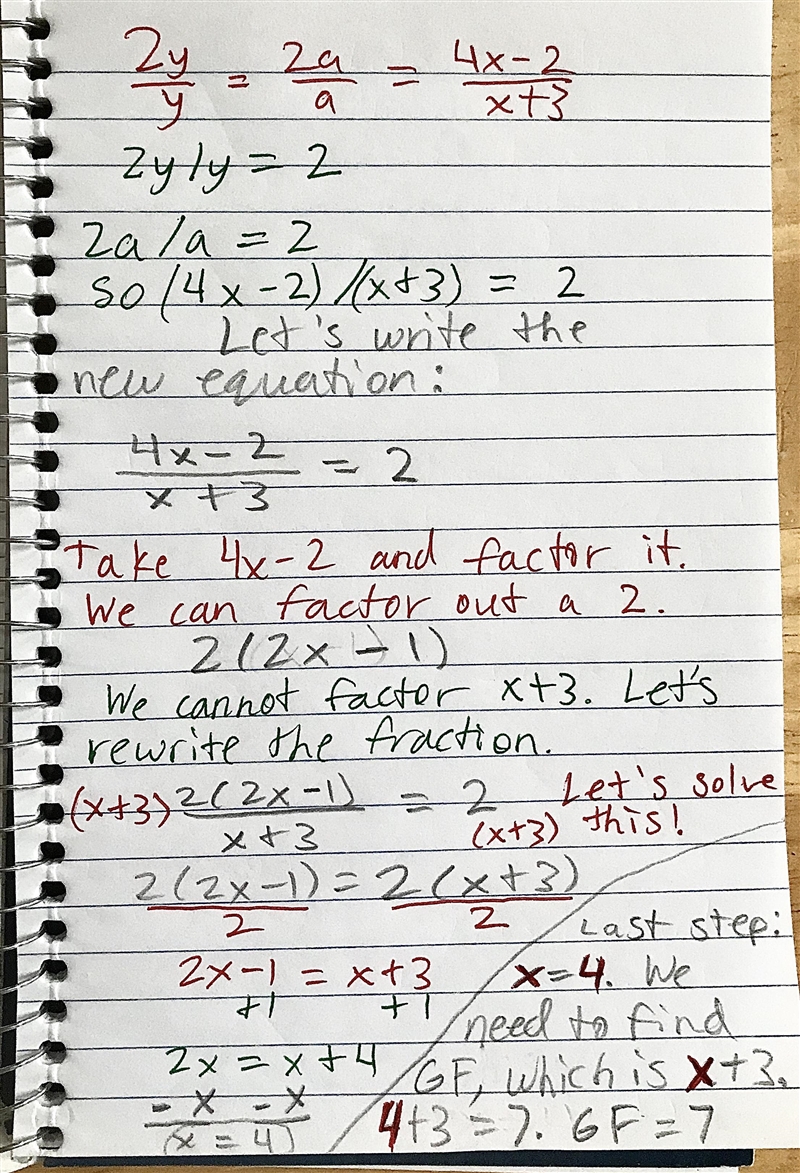 2y/y = 2a/a = (4x-2)/(x+3)
2y/y = 2
2a/a = 2
so (4x-2)/(x+3) = 2
Let's write the
new equation:
(4x-2)/(x+3) = 2
Take 4x-2 and factor it.
We can factor out a 2.
2(2x-1)
We cannot factor x+3. Let's
rewrite the fraction.
(x+3) 2(2x-1)/(x+3) = 2 (x+3)
Let's solve
this!
2(2x-1)/2 = 2(x+3)/2
2x-1 = x+3
+1 +1
2x = x+4
-x -x
(x = 4)
Last step:
x=4. We
need to find
GF, which is x+3.
4+3 = 7. GF = 7